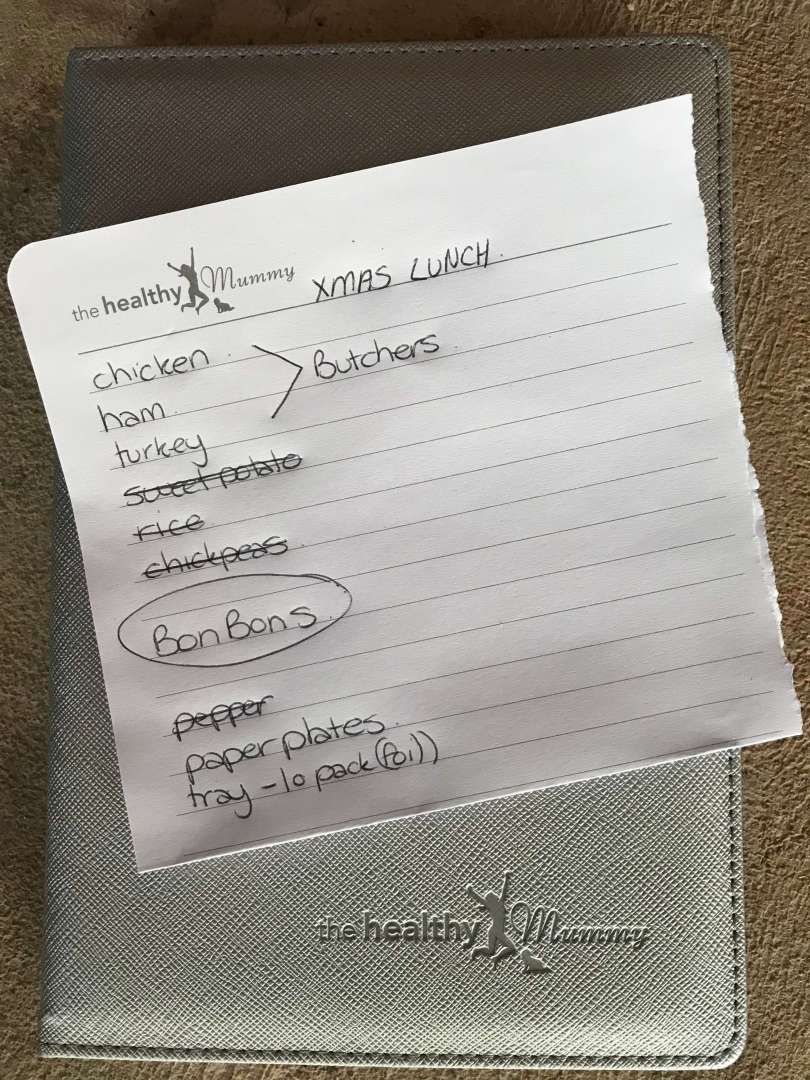 the healthy Mummy XMAS LUNCH
chicken Butchers
ham
turkey
sweet potato
rice
chickpeas
BonBons
pepper
paper plates
tray - 10 pack (foil)
the healthy Mummy